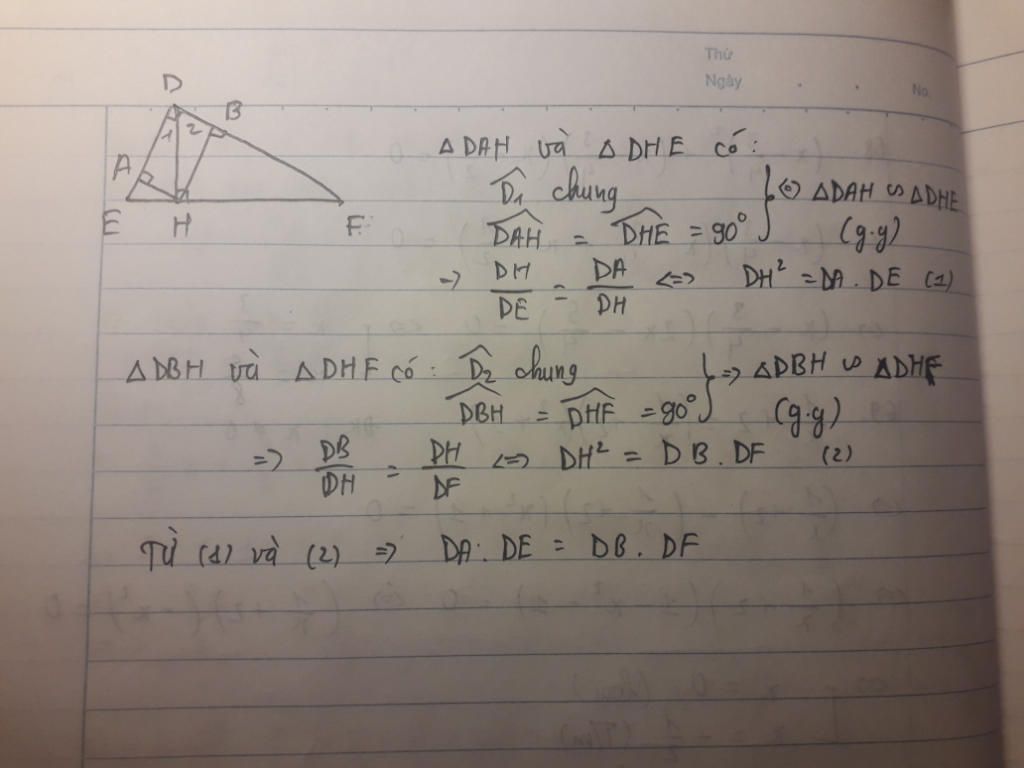 Thứ
Ngày
No.
D
B
1 2
A
E H F
△DAH và △DHE có:
D̂₁ chung
⇔ △DAH ∽ △DHE
DAH = DHE = 90°
(g.g)
⇒ DH/DE = DA/DH ⇔ DH² = DA . DE (1)
△DBH và △DHF có: D̂₂ chung
⇒ △DBH ∽ △DHF
DBH = DHF = 90°
(g.g)
⇒ DB/DH = DH/DF ⇔ DH² = DB . DF (2)
Từ (1) và (2) ⇒ DA . DE = DB . DF